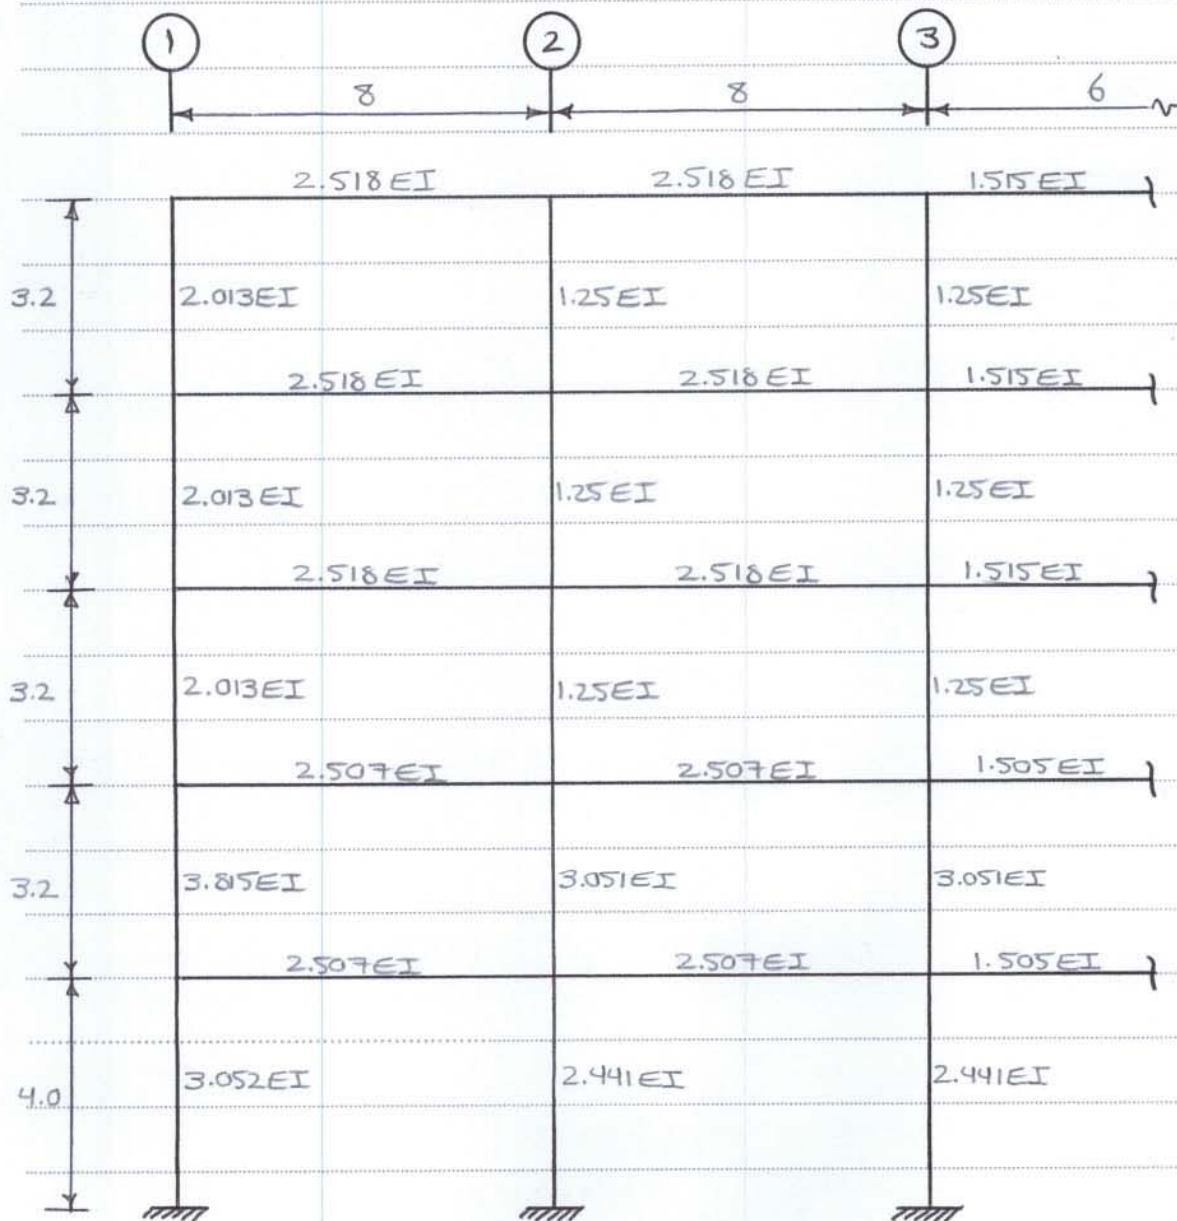 1 2 3
8 8 6
2.518EI 2.518EI 1.515EI
3.2 2.013EI 1.25EI 1.25EI
2.518EI 2.518EI 1.515EI
3.2 2.013EI 1.25EI 1.25EI
2.518EI 2.518EI 1.515EI
3.2 2.013EI 1.25EI 1.25EI
2.507EI 2.507EI 1.505EI
3.2 3.815EI 3.051EI 3.051EI
2.507EI 2.507EI 1.505EI
4.0 3.052EI 2.441EI 2.441EI